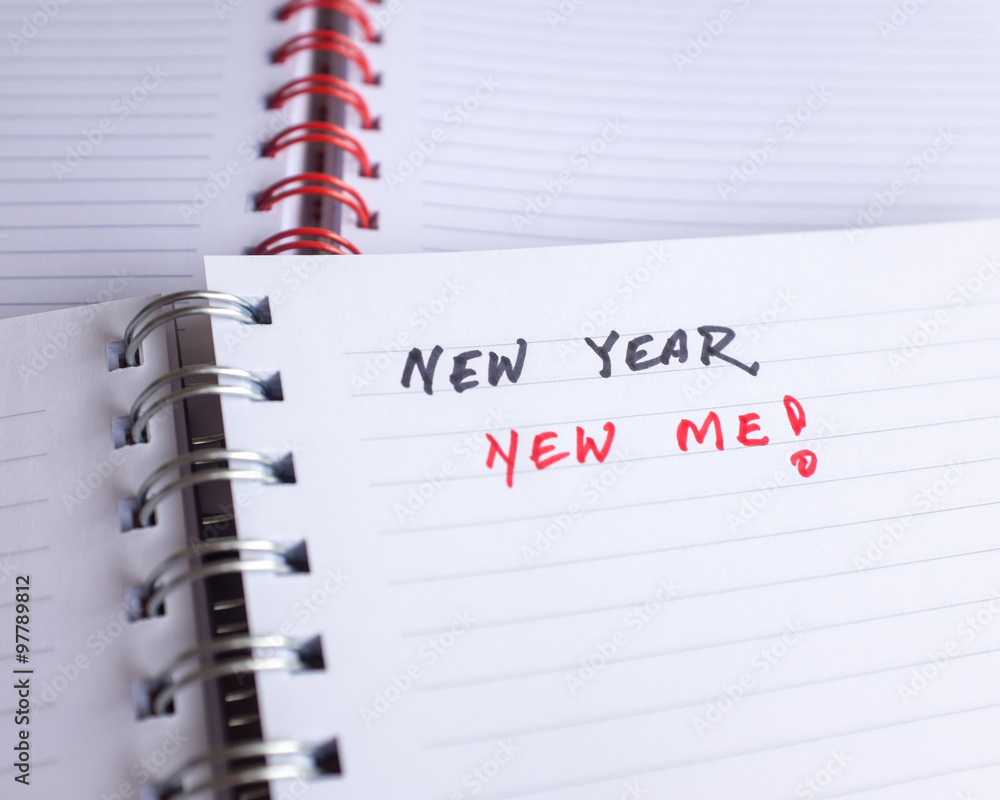 NEW YEAR
NEW ME!
Adobe Stock | #97789812